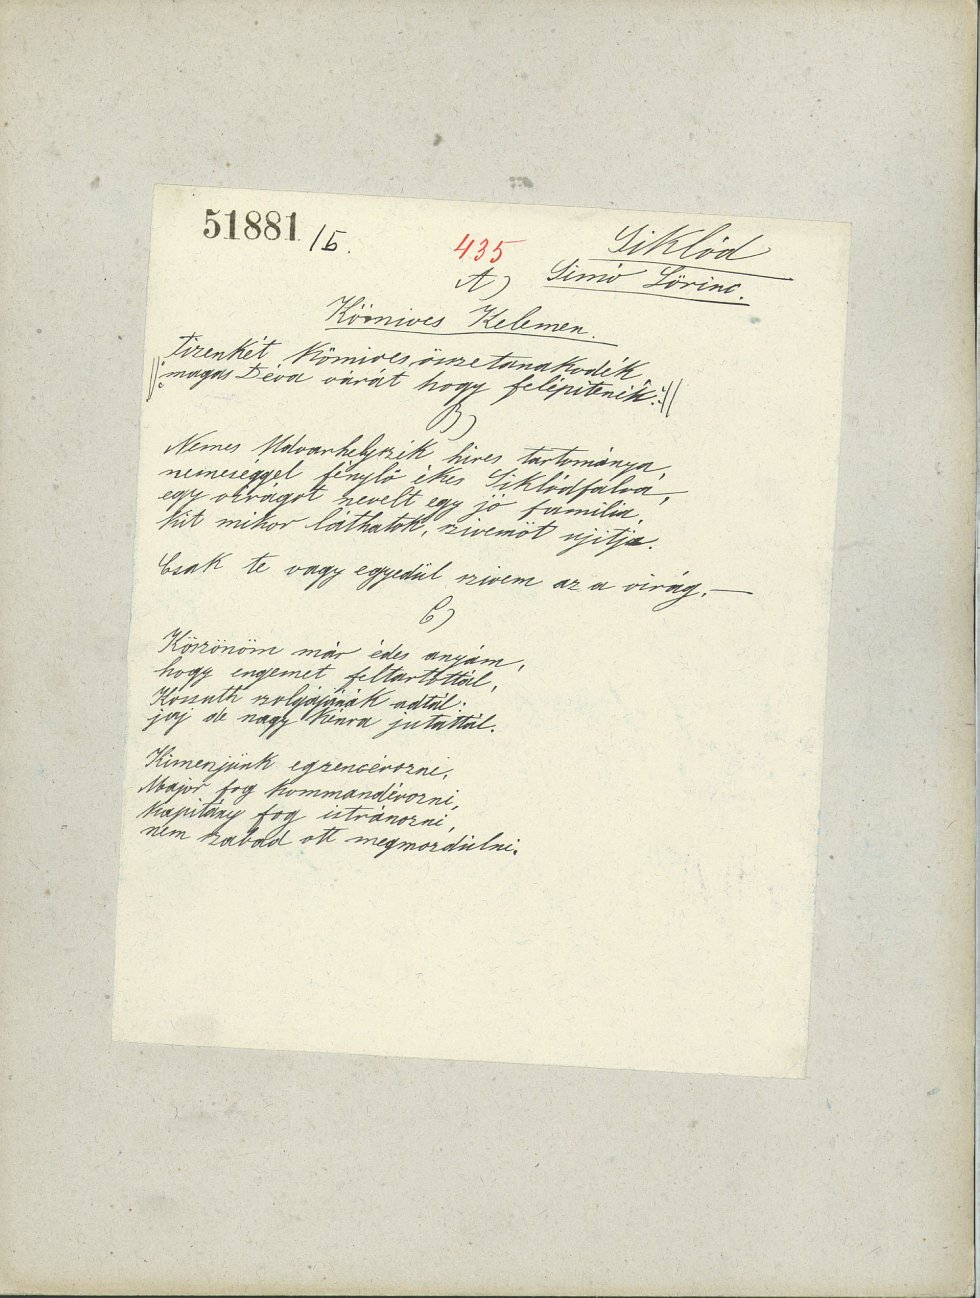 51881 /5.
435
Siklód
A)
Simó Lőrinc.
Kőmives Kelemen.
Tizenkét Kőmives össze tanakodék
||: magas Déva várát hogy felépitenék :||
B)
Nemes Udvarhelyszék hires tartománya,
nemeséggel fénylő ékes Siklódfalva,
egy virágot nevelt egy jó familia,
kit mikor láthatok, szivemöt ujitja.
Csak te vagy egyedül szivem az a virág. —
C)
Köszönöm már édes anyám,
hogy engemet feltartottál,
Kossuth szolgájának adtál:
jaj de nagy kinra jutattál.
Kimenjünk egzencérozni,
Major fog kommandérozni,
Kapitány fog istránozni,
nem szabad ott megmozdulni.